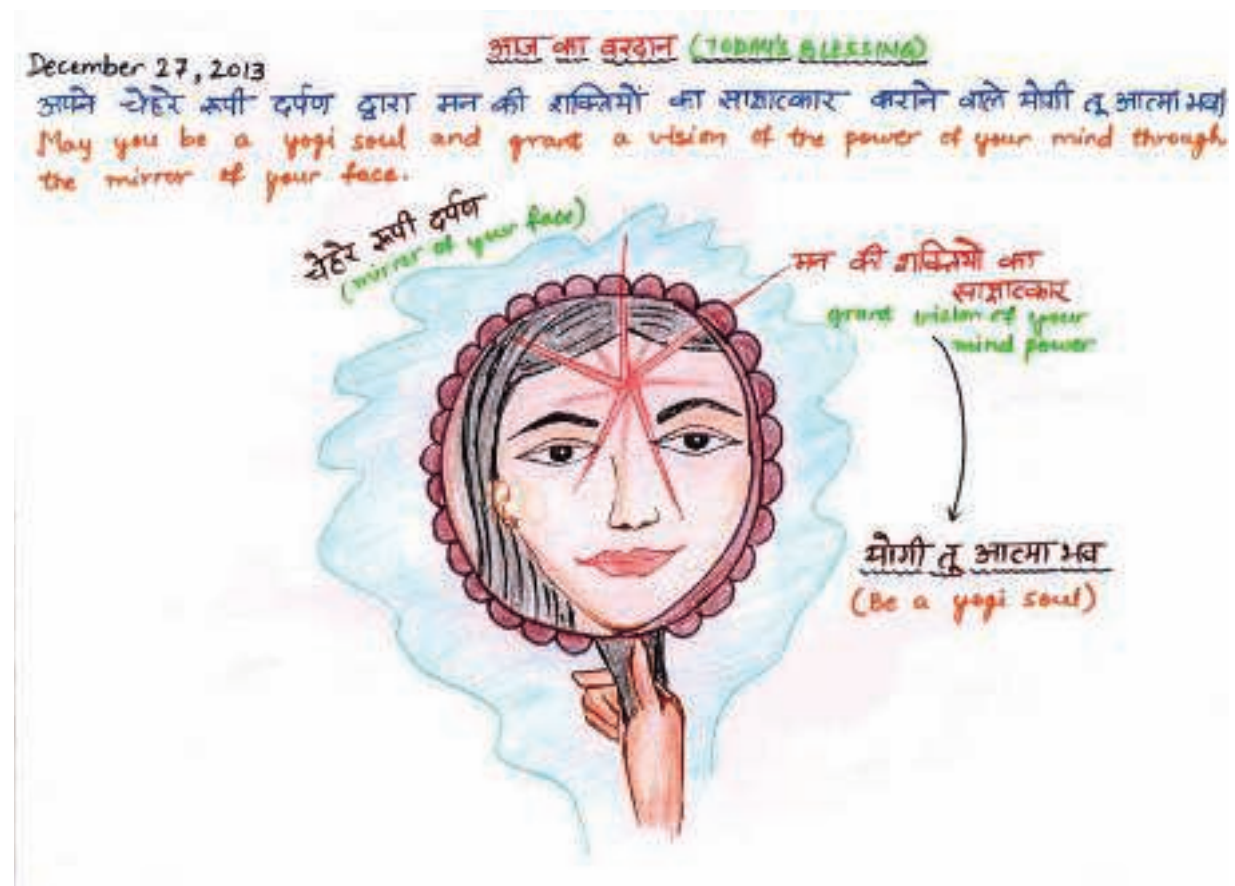 आज का वरदान (TODAY'S BLESSING)
December 27, 2013
अपने चेहरे रूपी दर्पण द्वारा मन की शक्तियों का साक्षात्कार कराने वाले योगी तू आत्मा भव
May you be a yogi soul and grant a vision of the power of your mind through
the mirror of your face.
चेहरे रूपी दर्पण
(mirror of your face)
मन की शक्तियों का
साक्षात्कार
grant vision of your
mind power
योगी तू आत्मा भव
(Be a yogi soul)